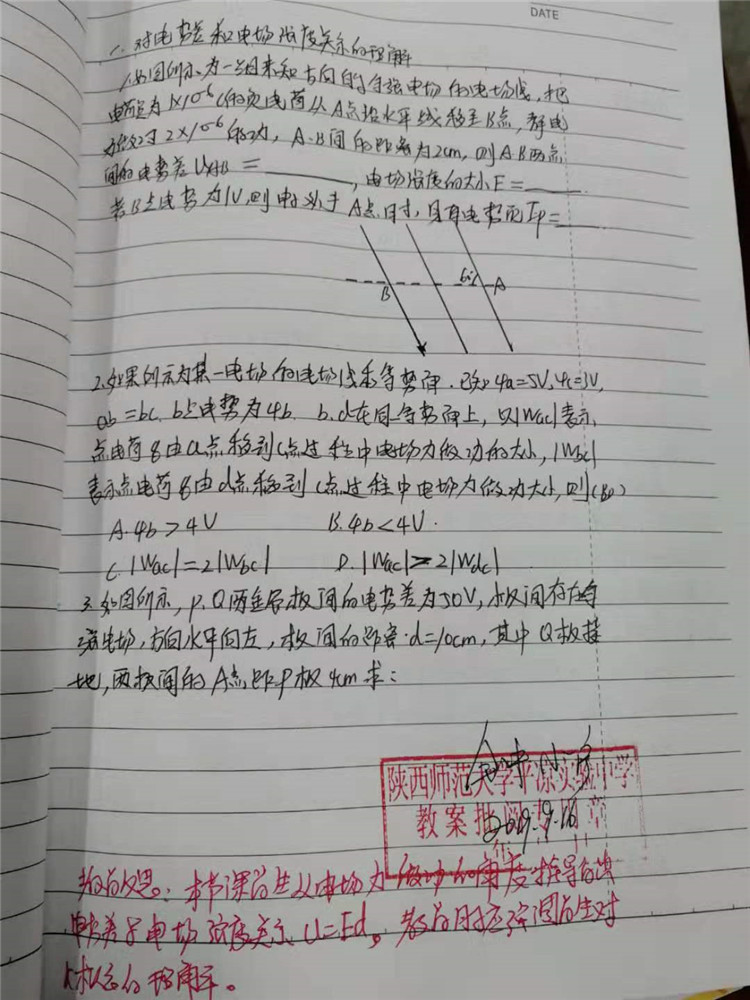 DATE
1. 对电势差和电场强度关系的理解
1.如图所示为一组未知方向的匀强电场的电场线,把
电荷量为1×10-6C的负电荷从A点沿水平线移至B点,静电
力做了2×10-6的功,A.B间的距离为2cm,则A.B两点
间的电势差UAB=____,电场强度的大小E=____
若B点电势为1V,则电荷处于A点时,具有电势能Ep=____
B 60° A
2.如果所示为某一电场的电场线和等势面.已知φa=5V.φc=3V,
ab=bc.b点电势为φb.b.d在同一等势面上,以|Wac|表示
点电荷q由a点移到c点过程中电场力做功的大小,|Wdc|
表示点电荷q由d点移到c点过程中电场力做功大小,则(BD)
A.φb>4V B.φb<4V.
C.|Wac|=2|Wbc| D.|Wac|>2|Wdc|
3.如图所示,P.Q两金属板间的电势差为50V,板间存在匀
强电场,方向水平向左,板间的距离d=10cm,其中Q板接
地,两板间的A点距P板4cm求:
陕西师范大学平凉实验中学
教案批阅专用章
2019.9.16
教后反思:本节课后生从电场力做功的角度推导出
电势差与电场强度关系U=Ed,教后时应强调后生对
的理解。